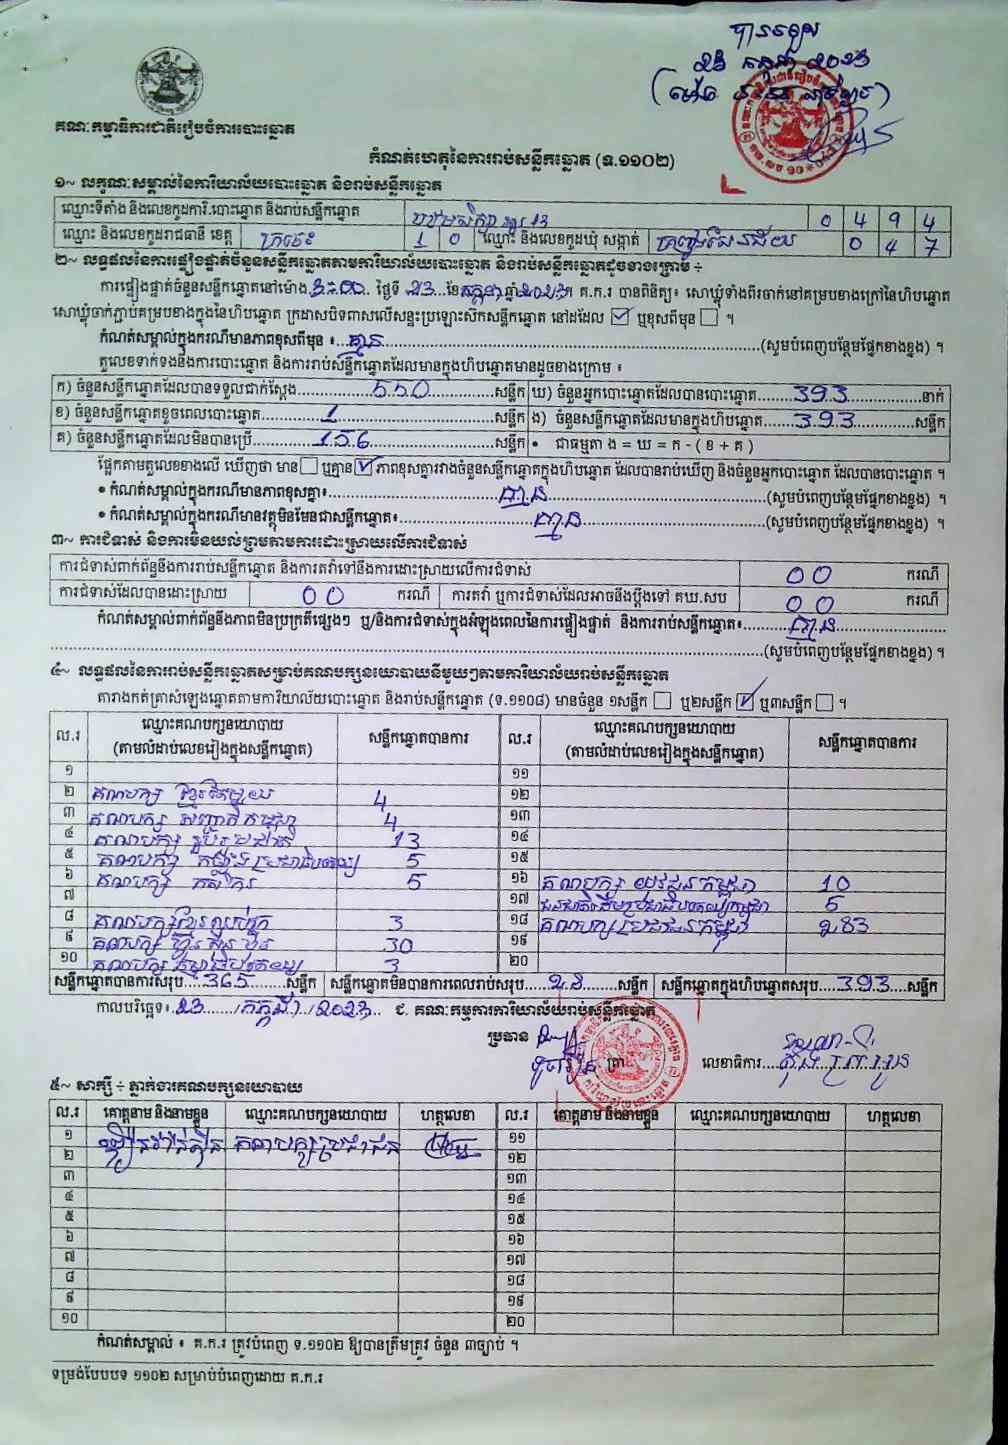 បានឃើញ
23 កក្កដា 2023
គណៈកម្មាធិការជាតិរៀបចំការបោះឆ្នោត
កំណត់ហេតុនៃការរាប់សន្លឹកឆ្នោត (ទ.១១០២)
១~ លក្ខណៈសម្គាល់នៃការិយាល័យបោះឆ្នោត និងរាប់សន្លឹកឆ្នោត
ឈ្មោះទីតាំង និងលេខកូដការិ.បោះឆ្នោត និងរាប់សន្លឹកឆ្នោត 0 4 9 4
ឈ្មោះ និងលេខកូដរាជធានី ខេត្ត ក្រចេះ 1 0 ឈ្មោះ និងលេខកូដឃុំ សង្កាត់ 0 4 7
២~ លទ្ធផលនៃការផ្ទៀងផ្ទាត់ចំនួនសន្លឹកឆ្នោតតាមការិយាល័យបោះឆ្នោត និងរាប់សន្លឹកឆ្នោតដូចខាងក្រោម ÷
ការផ្ទៀងផ្ទាត់ចំនួនសន្លឹកឆ្នោតនៅម៉ោង 3:00 ថ្ងៃទី 23 ខែ កក្កដា ឆ្នាំ 2023 គ.ក.រ បានពិនិត្យ៖ សោឃ្លុំទាំងពីរចាក់នៅគម្របខាងក្រៅនៃហិបឆ្នោត
សោឃ្លុំចាក់ភ្ជាប់គម្របខាងក្នុងនៃហិបឆ្នោត ក្រដាសបិទពាសលើសន្ទះប្រឡោះស៊កសន្លឹកឆ្នោត នៅដដែល ☑ ឬខុសពីមុន ☐ ។
កំណត់សម្គាល់ក្នុងករណីមានភាពខុសពីមុន ៖ គ្មាន (សូមបំពេញបន្ថែមផ្នែកខាងខ្នង) ។
តួលេខទាក់ទងនឹងការបោះឆ្នោត និងការរាប់សន្លឹកឆ្នោតដែលមានក្នុងហិបឆ្នោតមានដូចខាងក្រោម ៖
ក) ចំនួនសន្លឹកឆ្នោតដែលបានទទួលជាក់ស្តែង 550 សន្លឹក ឃ) ចំនួនអ្នកបោះឆ្នោតដែលបានបោះឆ្នោត 393 នាក់
ខ) ចំនួនសន្លឹកឆ្នោតខូចពេលបោះឆ្នោត 1 សន្លឹក ង) ចំនួនសន្លឹកឆ្នោតដែលមានក្នុងហិបឆ្នោត 393 សន្លឹក
គ) ចំនួនសន្លឹកឆ្នោតដែលមិនបានប្រើ 156 សន្លឹក • ជាធម្មតា ង = ឃ = ក - ( ខ + គ )
ផ្អែកតាមតួលេខខាងលើ ឃើញថា មាន ☐ ឬគ្មាន ☑ ភាពខុសគ្នារវាងចំនួនសន្លឹកឆ្នោតក្នុងហិបឆ្នោត ដែលបានរាប់ឃើញ និងចំនួនអ្នកបោះឆ្នោត ដែលបានបោះឆ្នោត ។
• កំណត់សម្គាល់ក្នុងករណីមានភាពខុសគ្នា៖ គ្មាន (សូមបំពេញបន្ថែមផ្នែកខាងខ្នង) ។
• កំណត់សម្គាល់ក្នុងករណីមានវត្ថុមិនមែនជាសន្លឹកឆ្នោត៖ គ្មាន (សូមបំពេញបន្ថែមផ្នែកខាងខ្នង) ។
៣~ ការជំទាស់ និងការមិនយល់ព្រមតាមការដោះស្រាយលើការជំទាស់
ការជំទាស់ពាក់ព័ន្ធនឹងការរាប់សន្លឹកឆ្នោត និងការតវ៉ាទៅនឹងការដោះស្រាយលើការជំទាស់ 00 ករណី
ការជំទាស់ដែលបានដោះស្រាយ 00 ករណី ការតវ៉ា ឬការជំទាស់ដែលអាចនឹងប្តឹងទៅ គឃ.សប 00 ករណី
កំណត់សម្គាល់ពាក់ព័ន្ធនឹងភាពមិនប្រក្រតីផ្សេងៗ ឬ/និងការជំទាស់ក្នុងអំឡុងពេលនៃការផ្ទៀងផ្ទាត់ និងការរាប់សន្លឹកឆ្នោត៖ គ្មាន
(សូមបំពេញបន្ថែមផ្នែកខាងខ្នង) ។
៤~ លទ្ធផលនៃការរាប់សន្លឹកឆ្នោតសម្រាប់គណបក្សនយោបាយនីមួយៗតាមការិយាល័យរាប់សន្លឹកឆ្នោត
តារាងកត់ត្រាសំឡេងឆ្នោតតាមការិយាល័យបោះឆ្នោត និងរាប់សន្លឹកឆ្នោត (ទ.១១០៨) មានចំនួន ១សន្លឹក ☐ ឬ២សន្លឹក ☑ ឬ៣សន្លឹក ☐ ។
ល.រ ឈ្មោះគណបក្សនយោបាយ (តាមលំដាប់លេខរៀងក្នុងសន្លឹកឆ្នោត) សន្លឹកឆ្នោតបានការ ល.រ ឈ្មោះគណបក្សនយោបាយ (តាមលំដាប់លេខរៀងក្នុងសន្លឹកឆ្នោត) សន្លឹកឆ្នោតបានការ
១ ១១
២ គណបក្ស ខ្មែរតែមួយ 4 ១២
៣ គណបក្ស សញ្ជាតិកម្ពុជា 4 ១៣
៤ គណបក្ស រួបរួមជាតិ 13 ១៤
៥ គណបក្ស កម្លាំងប្រជាធិបតេយ្យ 5 ១៥
៦ គណបក្ស កសិករ 5 ១៦ គណបក្ស យុវជនកម្ពុជា 10
៧ ១៧ ជនជាតិដើមប្រជាធិបតេយ្យកម្ពុជា 5
៨ គណបក្ស ខ្មែរឈប់ក្រ 3 ១៨ គណបក្ស ប្រជាជនកម្ពុជា 283
៩ គណបក្ស ហ៊្វុនស៊ិនប៉ិច 30 ១៩
១០ គណបក្ស ធម្មាធិបតេយ្យ 3 ២០
សន្លឹកឆ្នោតបានការសរុប 365 សន្លឹក សន្លឹកឆ្នោតមិនបានការពេលរាប់សរុប 28 សន្លឹក សន្លឹកឆ្នោតក្នុងហិបឆ្នោតសរុប 393 សន្លឹក
កាលបរិច្ឆេទ៖ 23 / កក្កដា / 2023 ជ. គណៈកម្មការការិយាល័យរាប់សន្លឹកឆ្នោត
ប្រធាន ត្រា លេខាធិការ
៥~ សាក្សី ÷ ភ្នាក់ងារគណបក្សនយោបាយ
ល.រ គោត្តនាម និងនាមខ្លួន ឈ្មោះគណបក្សនយោបាយ ហត្ថលេខា ល.រ គោត្តនាម និងនាមខ្លួន ឈ្មោះគណបក្សនយោបាយ ហត្ថលេខា
១ គណបក្សប្រជាជន ១១
២ ១២
៣ ១៣
៤ ១៤
៥ ១៥
៦ ១៦
៧ ១៧
៨ ១៨
៩ ១៩
១០ ២០
កំណត់សម្គាល់ ៖ គ.ក.រ ត្រូវបំពេញ ទ.១១០២ ឱ្យបានត្រឹមត្រូវ ចំនួន ៣ច្បាប់ ។
ទម្រង់បែបបទ ១១០២ សម្រាប់បំពេញដោយ គ.ក.រ